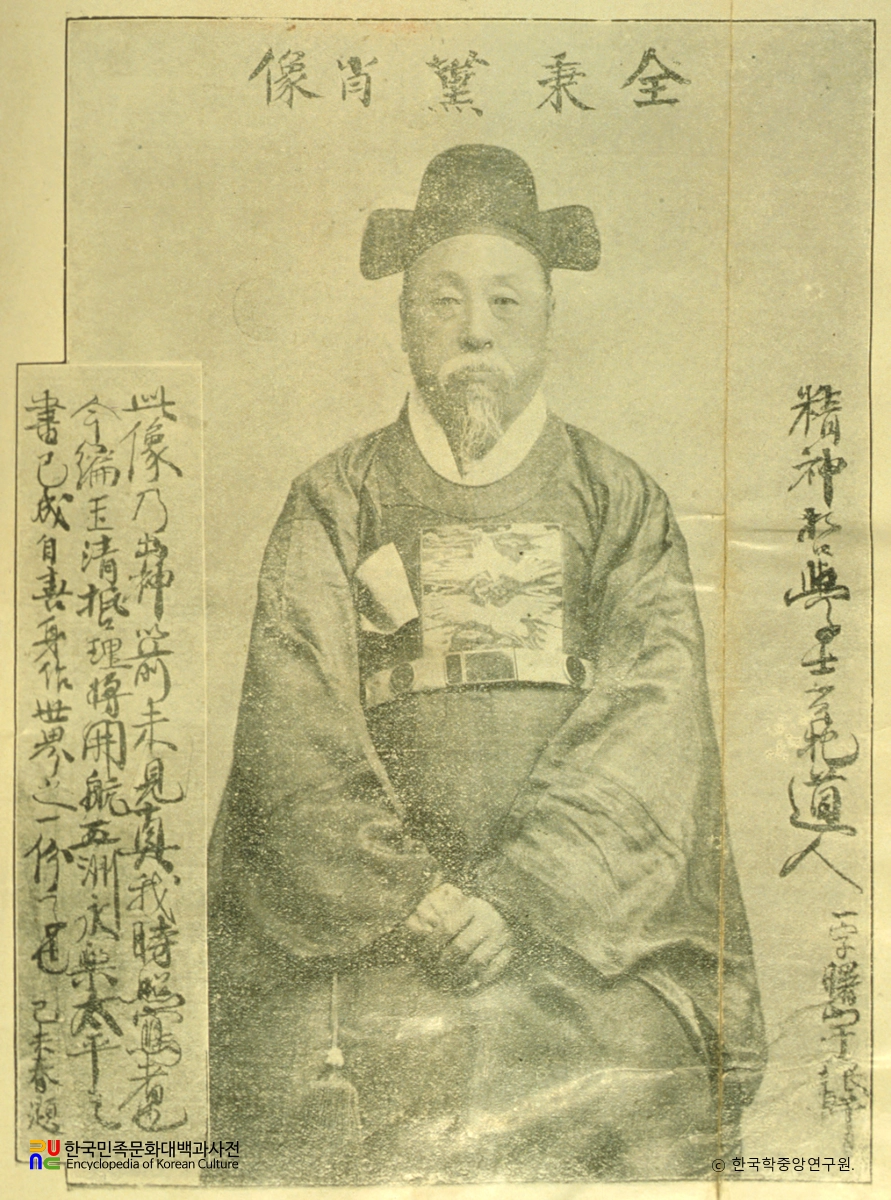 全秉薰肖像
精神哲學士玄牝道人
一字曙宇
此像乃出神以前未見眞我時照寫者也
今編玉清哲理將開航五洲永樂太平之
書已成自喜身作世界之一份子也 己未春題
한국민족문화대백과사전
Encyclopedia of Korean Culture
ⓒ 한국학중앙연구원.